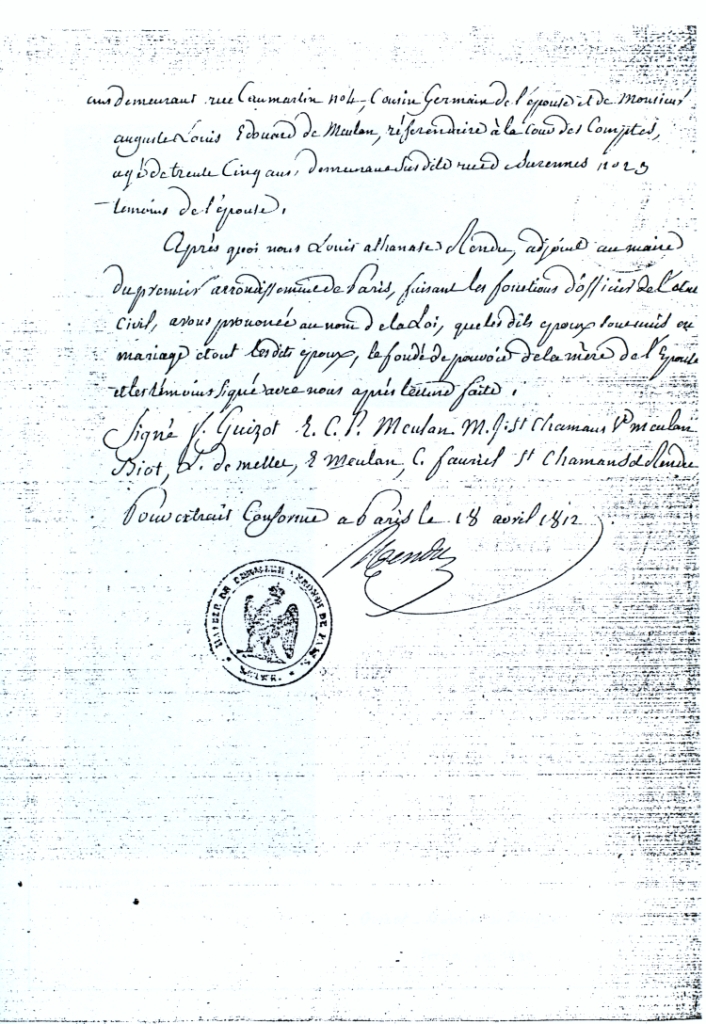 ans demeurant rue Caumartin no 4, Cousin Germain de l'épouse et de Monsieur
auguste Louis Edouard de Meulan, référendaire à la Cour des Comptes,
agé de trente Cinq ans, demeurant susdite rue de Surennes no 23
témoins de l'épouse.
Après quoi nous Louis athanase Rendu, adjoint au maire
du premier arrondissement de Paris, faisant les fonctions d'officier de l'état
civil, avons prononcé au nom de la Loi, que les dits époux sont unis en
mariage et ont les dits époux, le fondé de pouvoir de la mère de l'Epouse
et les témoins signé avec nous après lecture faite.
Signé f. Guizot E. C. P. Meulan M. J. St Chamans Ve meulan
Biot, de mellet, E Meulan, C. fauriel St Chamans & Rendu
Pour extrait Conforme a Paris le 18 avril 1812
Rendu
DE PARIS
SEINE.